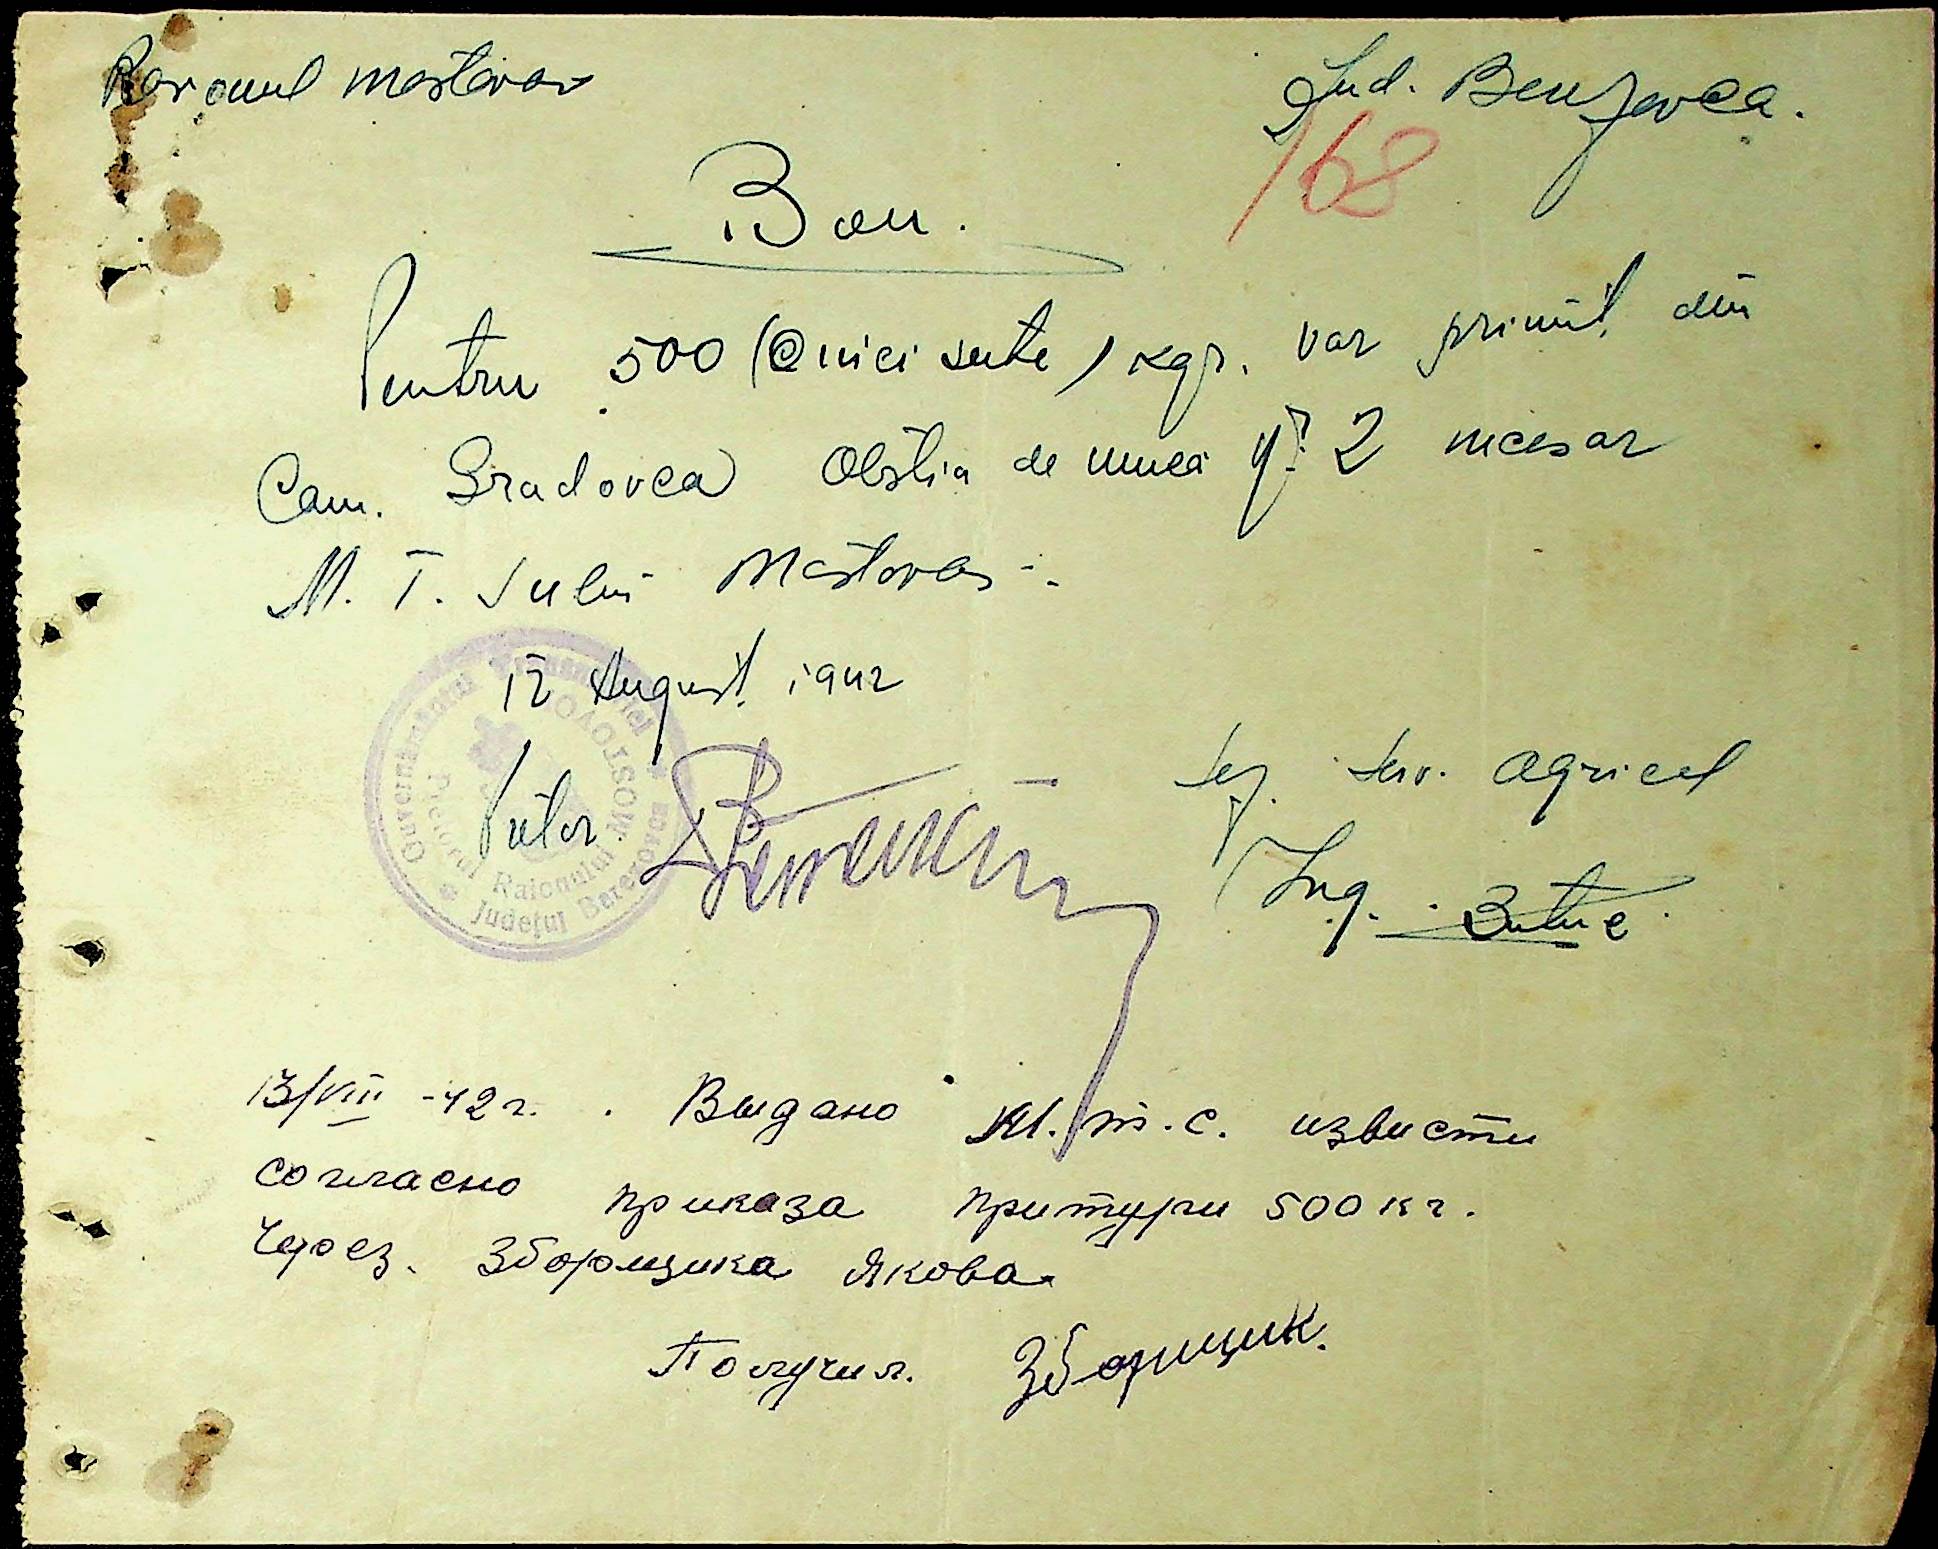 Raionul Mostovoi
Jud. Berezovca.
168
Bon.
Pentru 500 (Cinci sute) kgr. var primit din
Com. Gradovca Obștia de muncă No 2 necesar
M. T. Sului Mostovoi.
12 August 1942
Guvernământul Transnistriei
Pretorul Raionului MOSTOVOI
Județul Berezovca
Pretor
Șef. Serv. Agricol
Ing.
13/VIII -42 г. Выдано М.т.с. извисти
согласно приказа притури 500 кг.
Через Зборщика Якова
Получил. Зборщик.